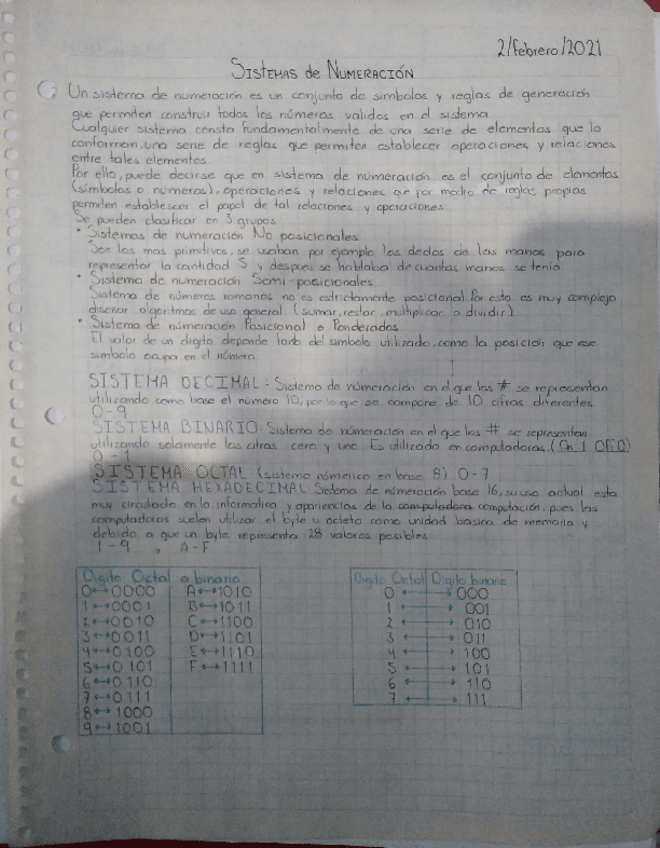 2/febrero/2021
SISTEMAS de NUMERACIÓN
Un sistema de numeración es un conjunto de simbolos y reglas de generación
que permiten construir todos los números validos en el sistema
Cualquier sistema consta fundamentalmente de una serie de elementos que lo
conforman, una serie de reglas que permiten establecer operaciones y relaciones
entre tales elementos
Por ello, puede decirse que en sistema de numeración es el conjunto de elementos
(símbolos o números), operaciones y relaciones que por medio de reglas propias
permiten establecer el papel de tal relaciones y operaciones
Se pueden clasificar en 3 grupos
• Sistemas de numeración No posicionales
Son los mas primitivos, se usaban por ejemplo los dedos de las manos para
representar la cantidad 5 y despues se hablaba de cuantas manos se tenia
• Sistema de numeración Semi-posicionales
Sistema de números romanos no es estrictamente posicional Por esto es muy complejo
diseñar algoritmos de uso general (sumar, restar, multiplicar o dividir)
• Sistema de númeración Posicional o Ponderados
El valor de un digito depende tanto del simbolo utilizado, como la posición que ese
simbolo ocupa en el número
SISTEMA DECIMAL: Sistema de númeración en el que los # se representan
utilizando como base el número 10, por lo que se compone de 10 cifras diferentes
0-9
SISTEMA BINARIO: Sistema de númeración en el que los # se representan
utilizando solamente las cifras cero y uno. Es utilizado en computadoras. (On 1 Of 0)
0-1
SISTEMA OCTAL: (sistema númerico en base 8) 0-7
SISTEMA HEXADECIMAL Sistema de númeración base 16, su uso actual esta
muy circulado en la informatica y apariencias de la computadora computación, pues las
computadoras suelen utilizar el byte u octeto como unidad basica de memoria y
debido a que un byte representa 28 valores posibles
1-9 y A-F
Digito Octal a binario
0↔0000 A↔1010
1↔0001 B↔1011
2↔0010 C↔1100
3↔0011 D↔1101
4↔0100 E↔1110
5↔0101 F↔1111
6↔0110
7↔0111
8↔1000
9↔1001
Digito Octal Digito binario
0 ↔ 000
1 ↔ 001
2 ↔ 010
3 ↔ 011
4 ↔ 100
5 ↔ 101
6 ↔ 110
7 ↔ 111